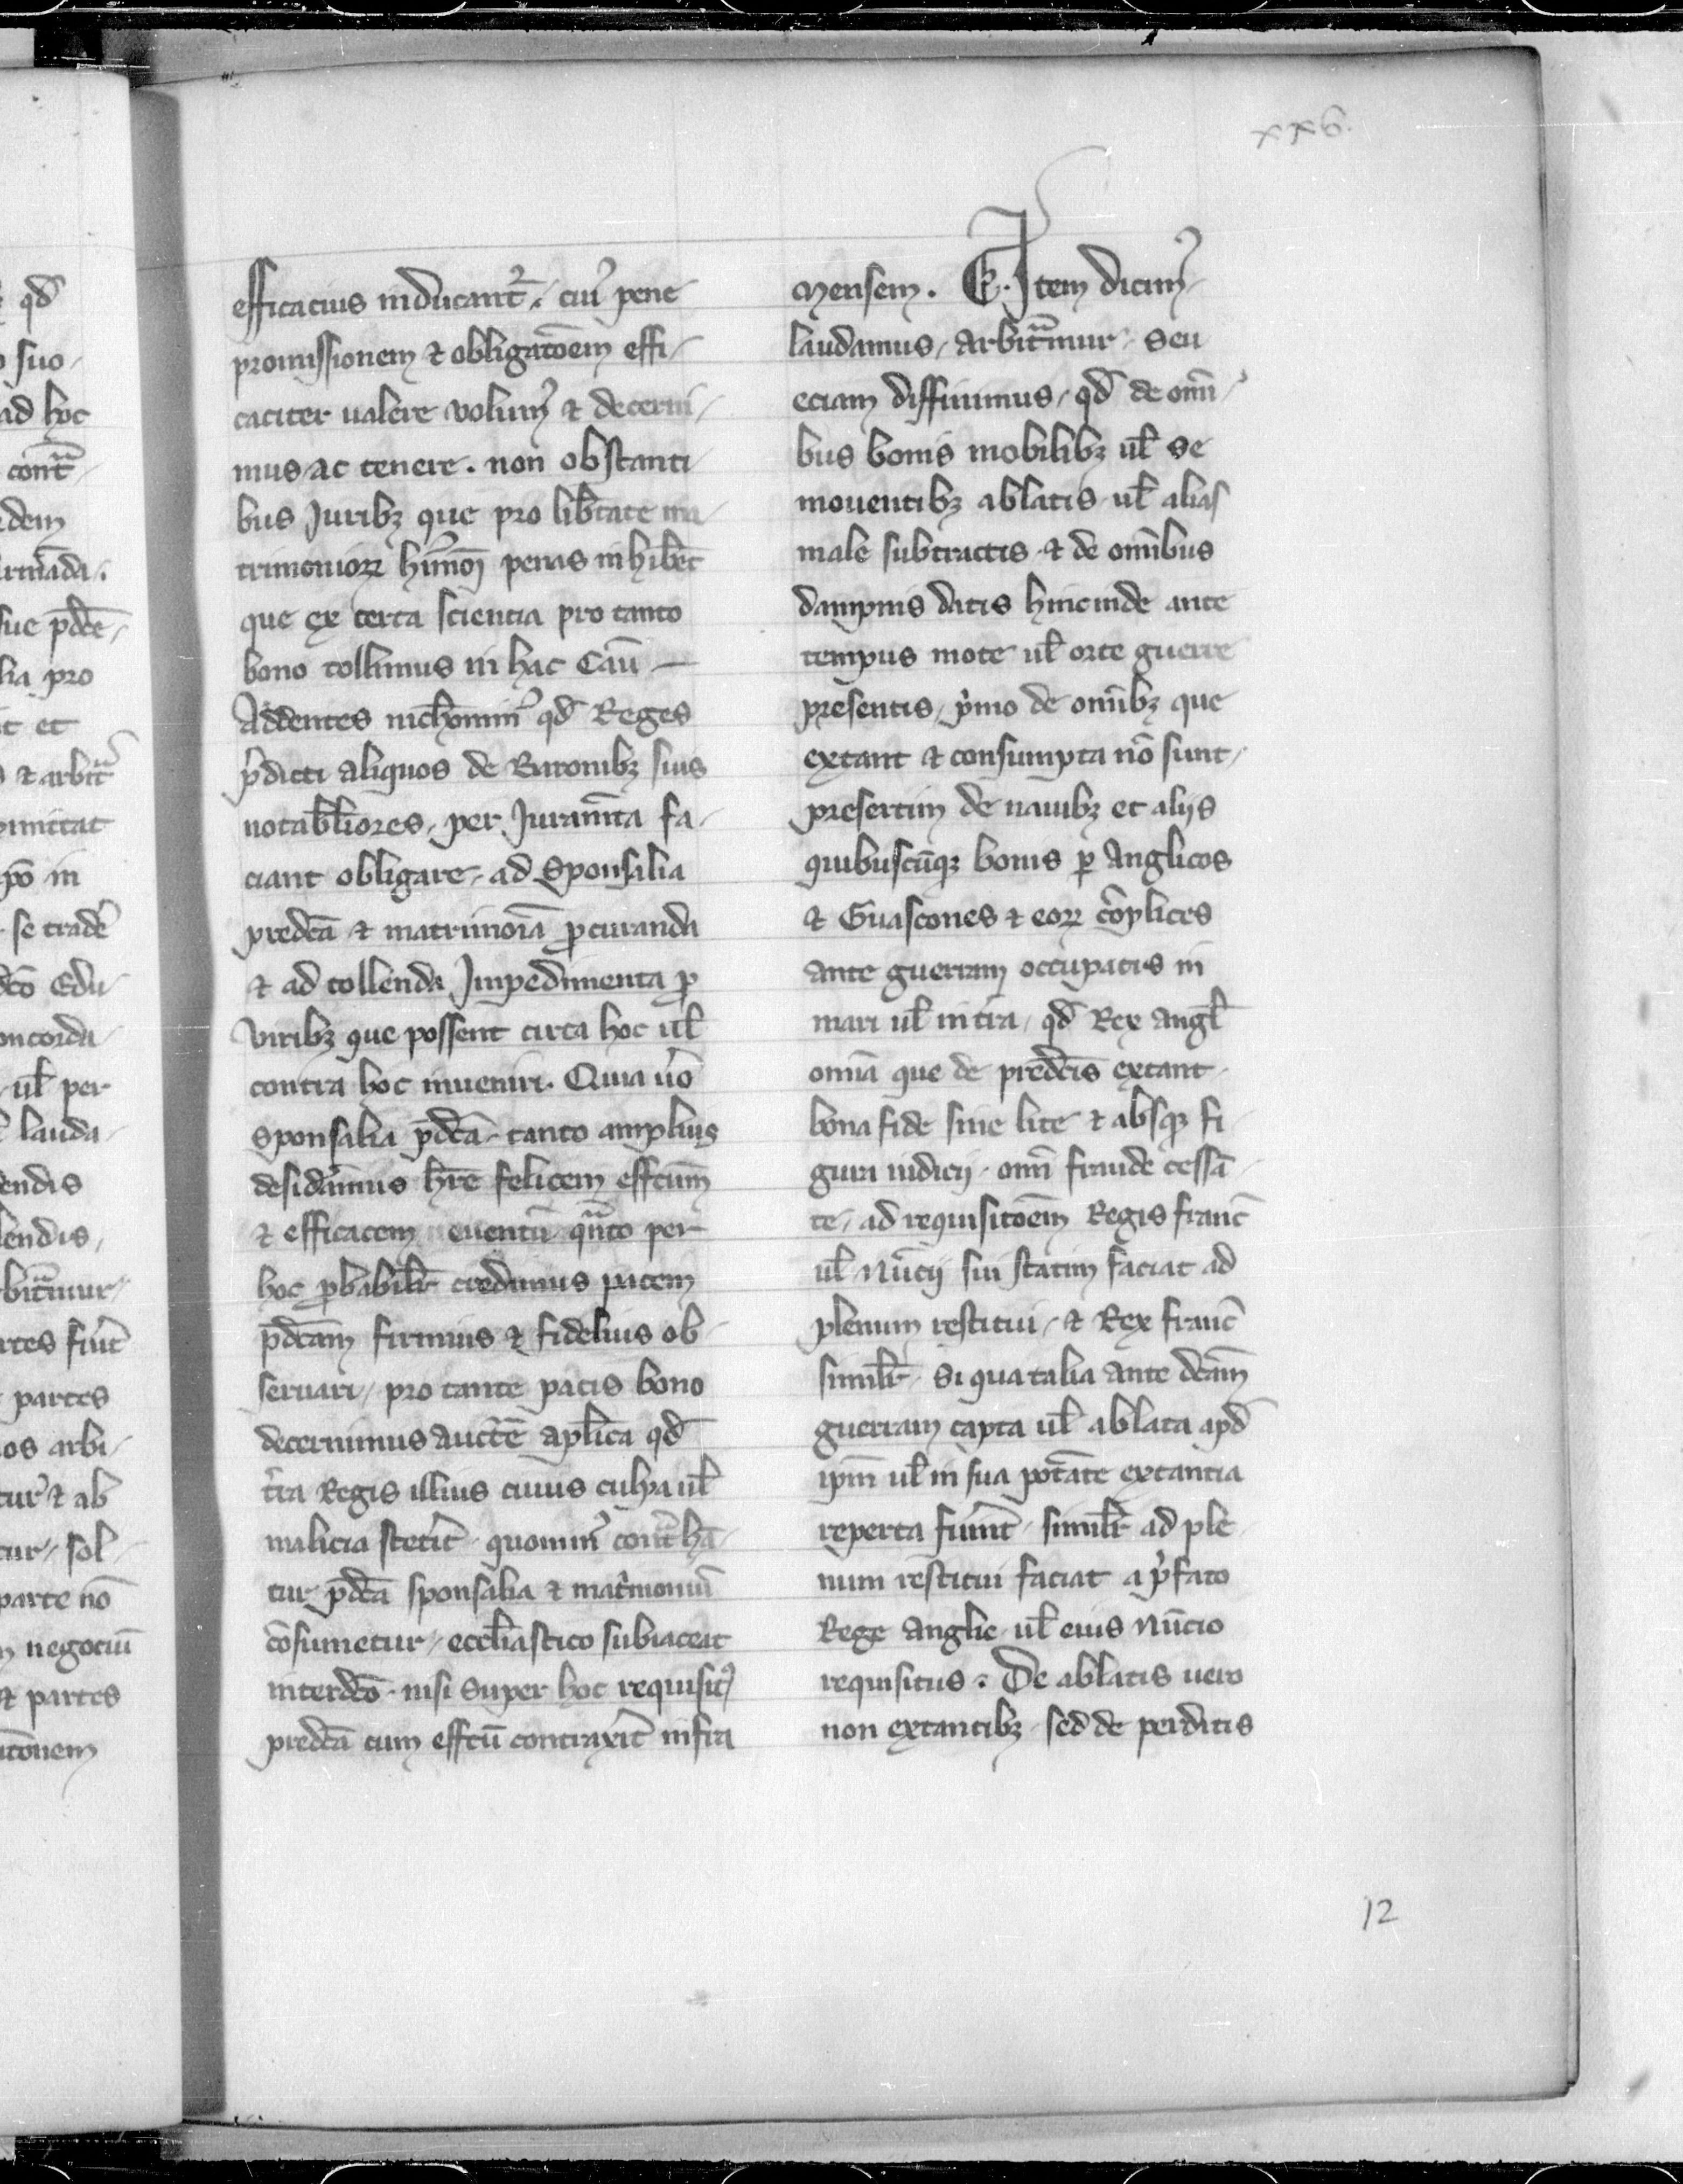 xx6.
efficacius inducant᷑. cū pene
promissionem ⁊ obligatōem effi-
caciter ualere volum᷒ ⁊ decerni-
mus ac tenere. non obstanti-
bus Juribꝫ que pro lib̄tate ma-
trimonioꝝ hm̄oi penas inhibēt
que ex certa sciencia pro tanto
bono tollimus in hac Cauī
Addentes nichomin᷒ qd̄ Reges
p̄dicti aliquos de Baronibꝫ suis
notabl̄iores, per Juramn̄ta fa-
ciant obligare, ad Sponsalia
predc̄a ⁊ matrimoīa ꝓcuranda
⁊ ad tollenda Impedimenta ꝓ
viribꝫ que possent circa hoc ul̄
contra hoc inueniri. Quia uō
Sponsalia p̄dc̄a tanto amplius
desidāmus hr̄e felicem effc̄um
⁊ efficacem euentū qn̄to per
hoc ꝓbabilit̄ credimus pacem
p̄dc̄am firmius ⁊ fidelius ob-
seruari, pro tante pacis bono
decernimus auctē apl̄ica qd̄
t̄ra Regis illius cuius culpa ul̄
malicia stetīt quomin᷒ cont̄hā-
tur p̄dc̄a sponsalia ⁊ mat̄moniū
cōsumetur, eccl̄iastico subiaceat
interdc̄o nisi super hoc requisit᷒
predc̄a cum effc̄ū contraxīt infra
mensem. E. Item dicim᷒
laudamus, arbitͣmur seu
eciam diffinimus, qd̄ de omī-
bus bonis mobilibꝫ ul̄ se
mouentibꝫ ablatis ul̄ alias
male subtractis ⁊ de omībus
dampnis datis hincinde ante
tempus mote ul̄ orte guerre
presentis, p̄mo de omībꝫ que
extant ⁊ consumpta nō sunt,
presertim de nauibꝫ et alijs
quibuscūqꝫ bonis ꝑ Anglicos
⁊ Guascones ⁊ eoꝝ cōplices
ante guerram occupatis in
mari ul̄ intra, qd̄ Rex Angl̄
omīa que de predc̄is extant
bona fide sine lite ⁊ absqꝫ fi-
gura iudicij omī fraude cessā-
te, ad requisitōem Regis franc̄
ul̄ Nūcij sui statim faciat ad
plenum restitui, ⁊ Rex franc̄
similit̄ Si qua talia ante dc̄am
guerram capta ul̄ ablata apd̄
ipm̄ ul̄ in sua potāte extantia
reperta fuīnt, similit̄ ad ple-
num restitui faciat a p̄fato
Rege Anglie ul̄ eius Nūcio
requisitus. De ablatis uero
non extantibꝫ sed de perditis
12